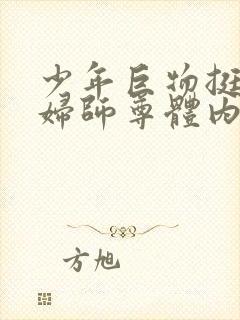 少年巨物挺
婦師尊體內
方旭